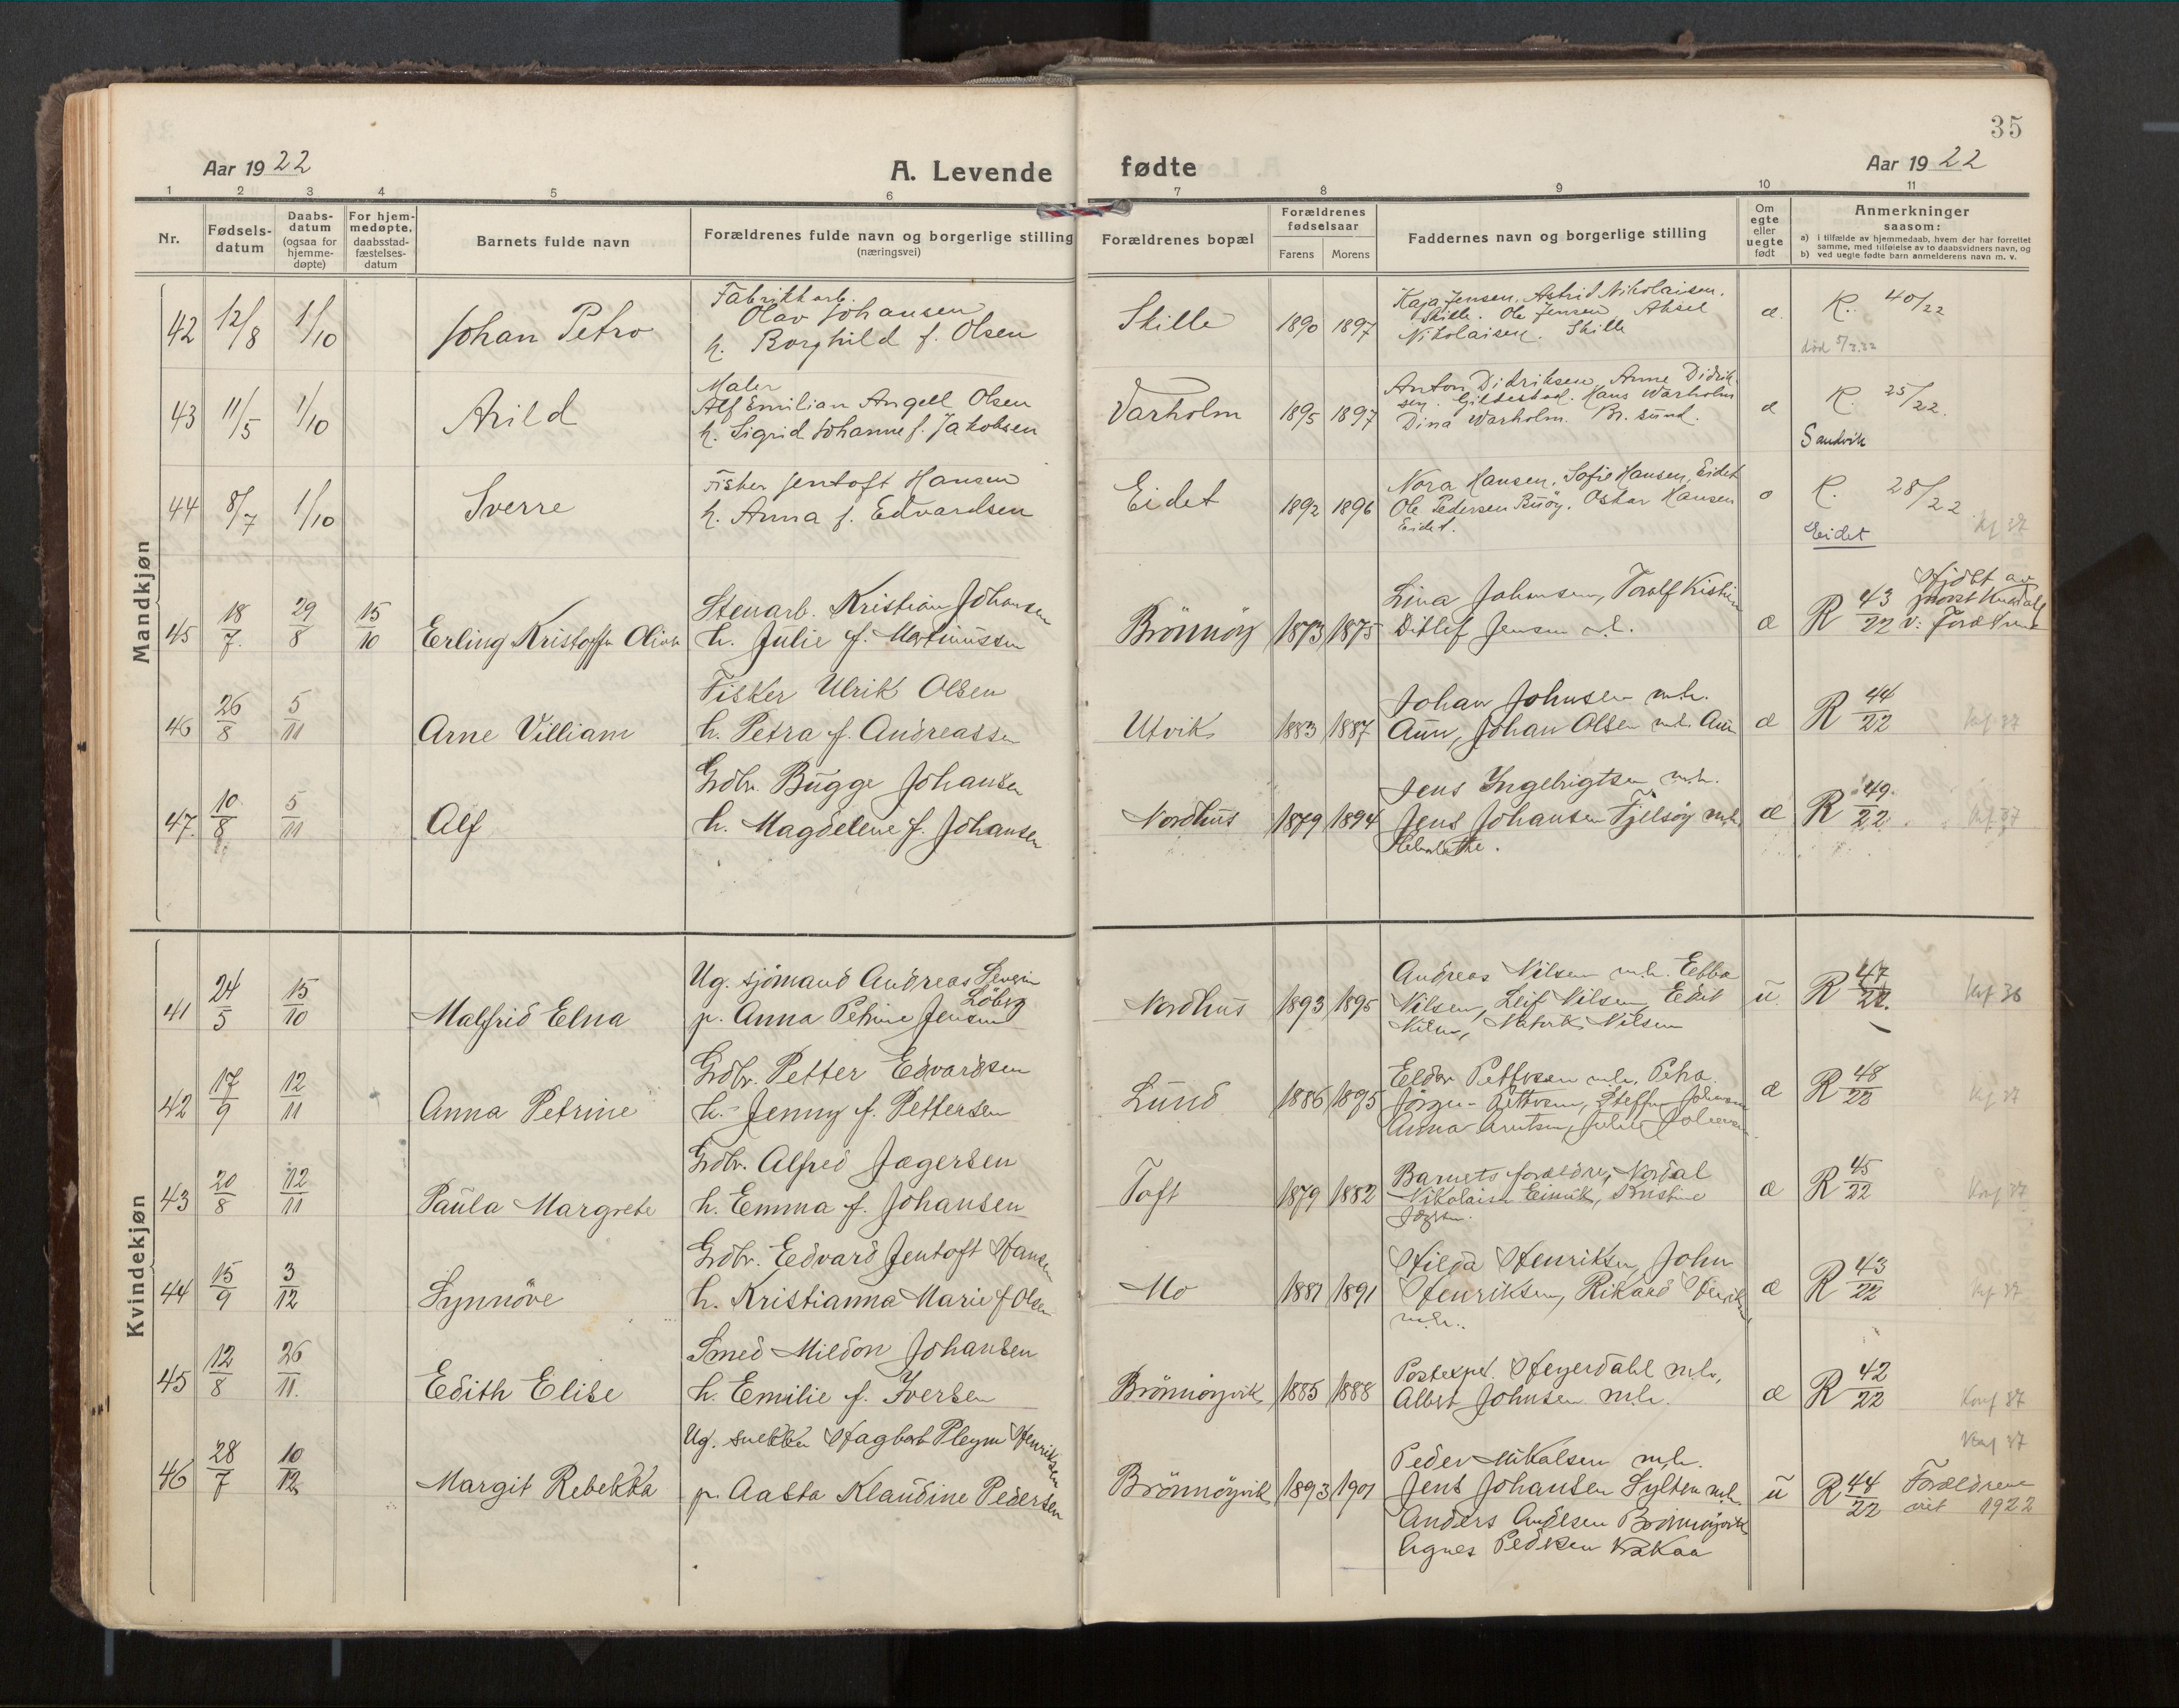 35
Aar 1922 A. Levende fødte Aar 1922
1 2 3 4 5 6 7 8 9 10 11
Nr. Fødsels-datum Daabs-datum (ogsaa for hjemme-døpte) For hjem-medøpte, daabsstad-fæstelses-datum Barnets fulde navn Forældrenes fulde navn og borgerlige stilling (næringsvei) Forældrenes bopæl Forældrenes fødselsaar Farens Morens Faddernes navn og borgerlige stilling Om egte eller uegte født Anmerkninger saasom:
a) i tilfælde av hjemmedaab, hvem der har forrettet samme, med tilføielse av to daabsvidners navn, og
b) ved uegte fødte barn anmelderens navn m. v.
Mandkjøn
42 12/8 1/10 Johan Petro
Fabrikkarb.
Olav Johansen
h. Borghild f. Olsen
Skille 1890 1897
Kaja Jensen, Astrid Nikolaisen.
Skille. Ole Jensen Aksel
Nikolaisen. Skille
æ R. 40/22
død 5/3.22
43 11/5 1/10 Arild
Maler
Alf Emilian Angell Olsen
h. Sigrid Johanne f. Jakobsen
Varholm 1895 1897
Anton Didriksen, Anne Didrik-
sen. Hans Warholm
Dina Warholm. Br. sund.
æ R. 25/22.
Sandvik
44 8/7 1/10 Sverre
Fisker Jentoft Hansen
h. Anna f. Edvardsen
Eidet 1892 1896
Nora Hansen, Sofie Hansen, Eidet
Ole Pedersen Buöy. Oskar Hansen
Eidet.
R. 28/22
Eidet kf 37
45 18/7. 29/8 15/10 Erling Kristoffer
Stenarb. Kristian Johansen
h. Julie f. Martinussen
Brönnöy 1873 1875
Lina Johansen, Toralf
Ditlef Jensen
æ R 43/22
Hjdbt av
46 26/8 5/11 Arne Villiam
Fisker Ulrik Olsen
h. Petra f. Andreassen
Utvik 1883 1887
Johan Johnsen m.h.
Aun, Johan Olsen m.h. Aun
æ R 44/22 kf 37
47. 10/8 5/11 Alf
Grdbr. Bugge Johansen
h. Magdelene f. Johansen
Nordhus 1879 1894
Jens Ingebrigtsen m.h.
Jens Johansen Tjelsöy m.h.
æ R 49/22 kf 37
Kvindekjøn
41 24/5 15/10 Malfrid Elna
Ug. sjömand Andreas Severin
Löberg
p. Anna Petrine Jensen
Nordhus 1893 1895
Andreas Nilsen m.h. Ebba
Nilsen, Leif Nilsen, Edit
Nilsen
u. R 47/22. kf 36
42 17/9 12/11 Anna Petrine
Grdbr. Petter Edvardsen
h. Jenny f. Pettersen
Lund 1886 1895
Pettersen m.h. Petra
Anna
æ R 48/22 kf 37
43 20/8 12/11 Paula Margrete
Grdbr. Alfred Jagersen
h. Emma f. Johansen
Toft 1879 1882
Barnets forældre, Nordal
Nikolaisen Kristine
æ R 45/22 Konf 37
44 15/9 3/12 Synnöve
Grdbr. Edvard Jentoft Hansen
h. Kristianna Marie f Olsen
Mo 1881 1891
Hilda Henriksen, John
Henriksen, Rikard Henriksen
m.h..
æ R 43/22 kf 37
45 12/8 26/11. Edith Elise
Smed Mildon Johansen
h. Emilie f. Iversen
Brönnöyvik 1885 1888
Postexped. Heyerdahl m.h.,
Albert Johnsen m.h.
æ R 42/22 Konf 37
46 28/7 10/12 Margit Rebekka
Ug. snekker Hagbart Pleym Henriksen
p. Aasta Klaudine Pedersen
Brönnöyvik 1893 1901
Peder Mikalsen m.h.
Jens Johansen Sylten m.h.
Anders Brönnöyvik
Agnes Pedersen
u R 44/22 Konf 37
Forældrene
viet 1922